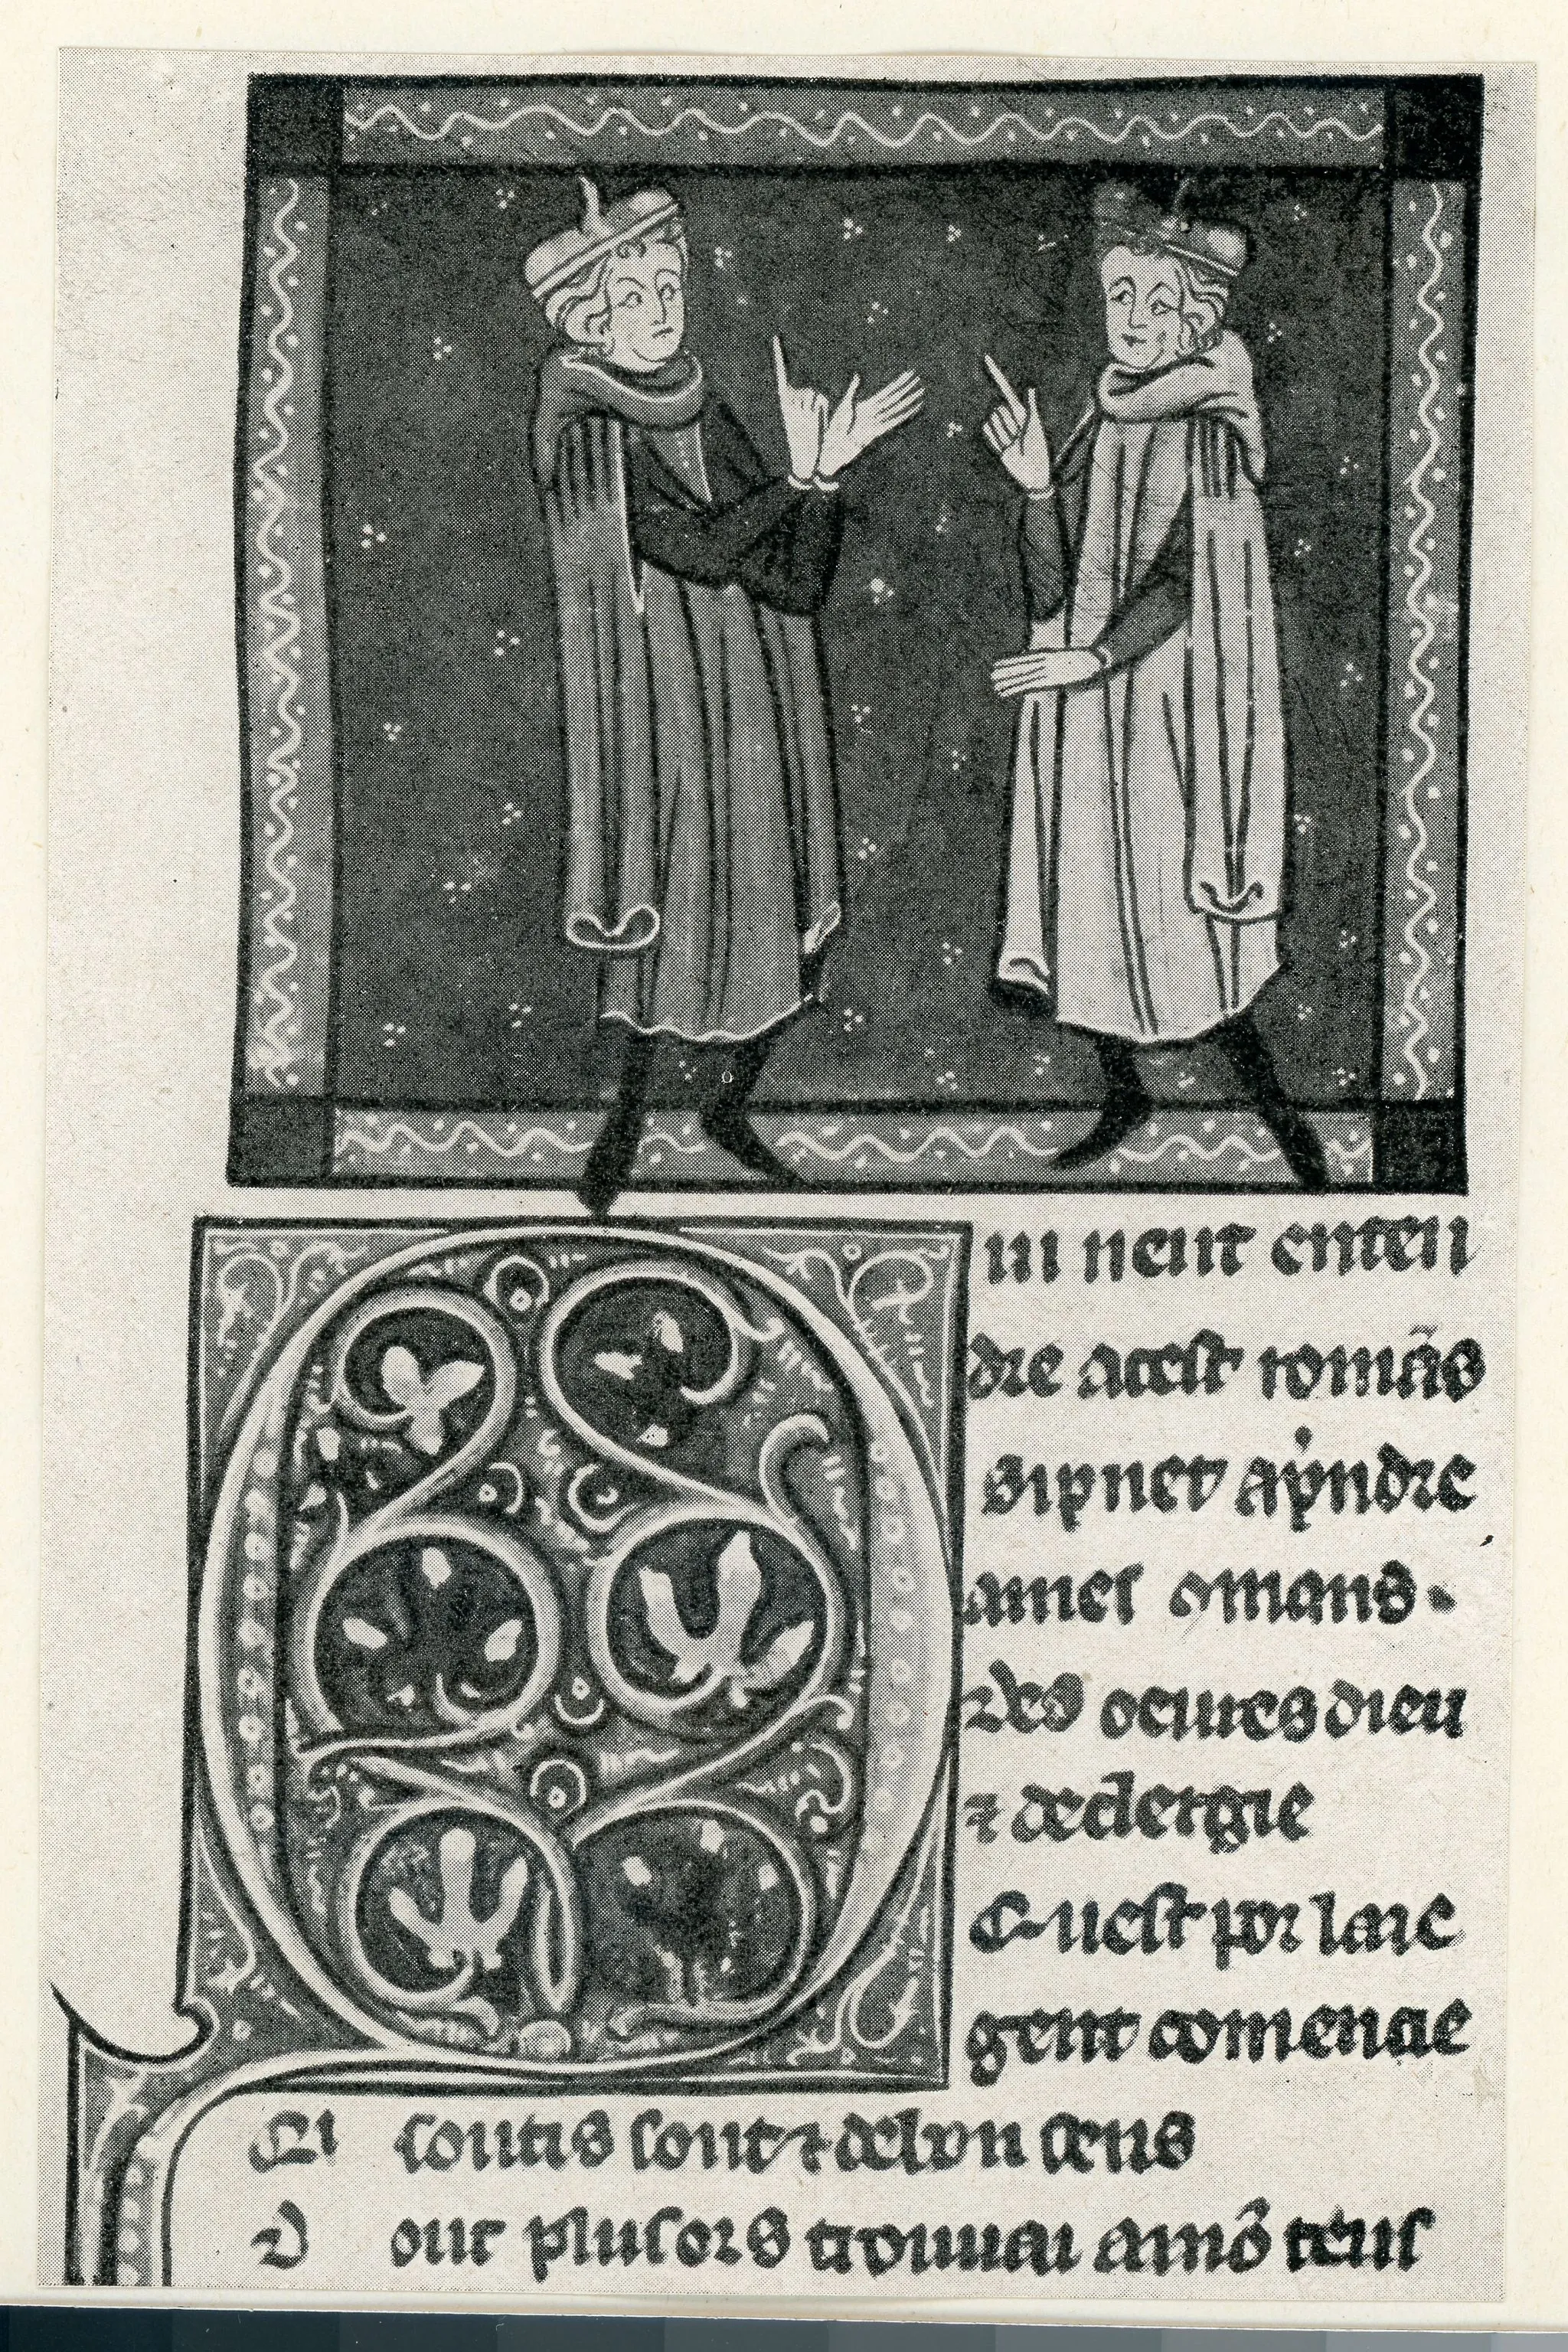 Qui ueut enten
dre acest romās
si puet ap̄ndre
ames comans.
⁊des oeuures dieu
⁊ declergie
Quest por laie
gent comencie
Qi soutis sont ⁊ debon sens
D ont plusors trouuai amō tens